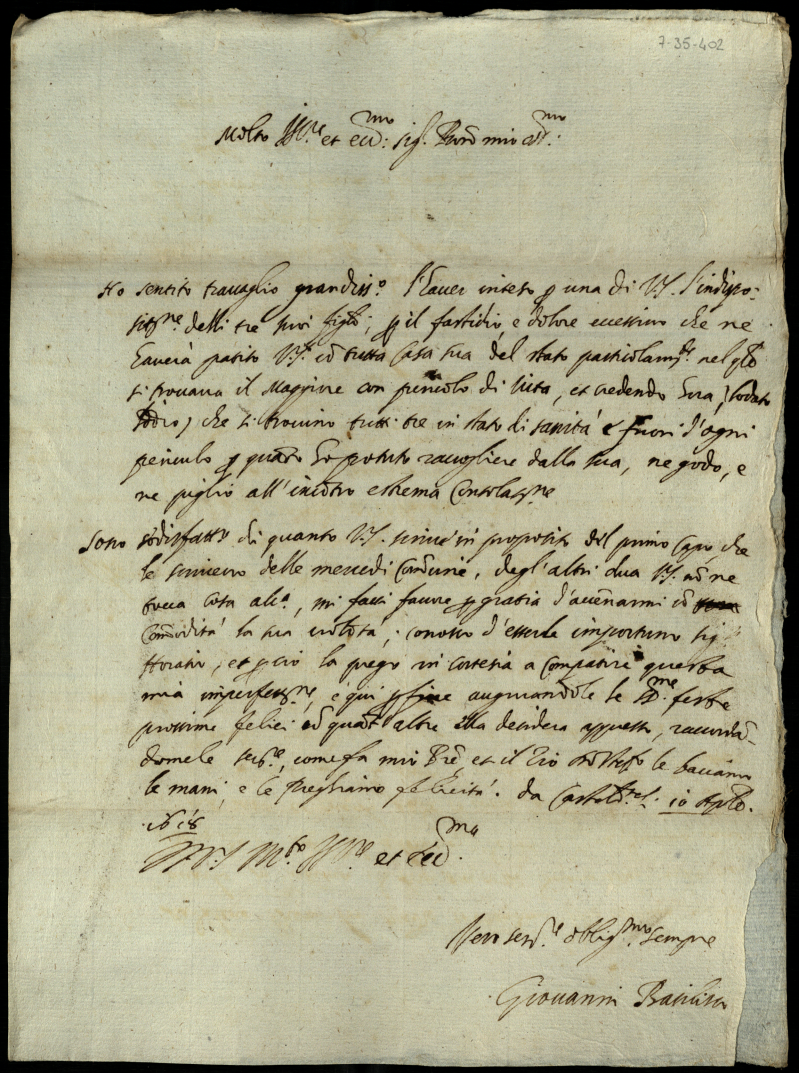 7-35-402
Molto Ill.re et ecc.mo sig.r Pron mio oss.mo
Ho sentito travaglio grandiss.o l'haver inteso p una di V.S. l'indispo-
sit.ne delli tre suoi figli, p il fastidio e dolore ecessivo che ne
haverà patito V.S. cō tutta Casa sua del stato particolarm.te nel qle
si trovava il Maggiore con pericolo di vita, et credendo hora, lodato
Iddio, che si trovino tutti tre in stato di sanità e fuori d'ogni
periculo p quāto ho potuto raccogliere dalla sua, ne godo, e
ne piglio all'incōtro estrema Consolat.ne
Sono sodisfatto di quanto V.S. scrive in proposito del primo Capo, che
le scrivevo delle mercedi Comunie, degl'altri dua V.S. nō ne
tocca cosa alc.a, mi facci favore p gratia d'accēnarmi cō
Comodità la sua volōtà, conosco d'esserle importuno sig.r
Horatio, et p ciò la prego in cortesia a Compatire questa
mia imperfett.ne, e qui p fine augurandole le S.me feste
prossime felici cō quāt altre ella desidera appresso, raccordā-
domele ser.re, come fa mio Prē et il Zio le bacciamo
le mani, e le Preghiamo felicità. da 10 Aple.
1618
Di V.S. M.to Ill.re et Ecc.ma
Vero ser.re oblig.mo sempre
Giovanni